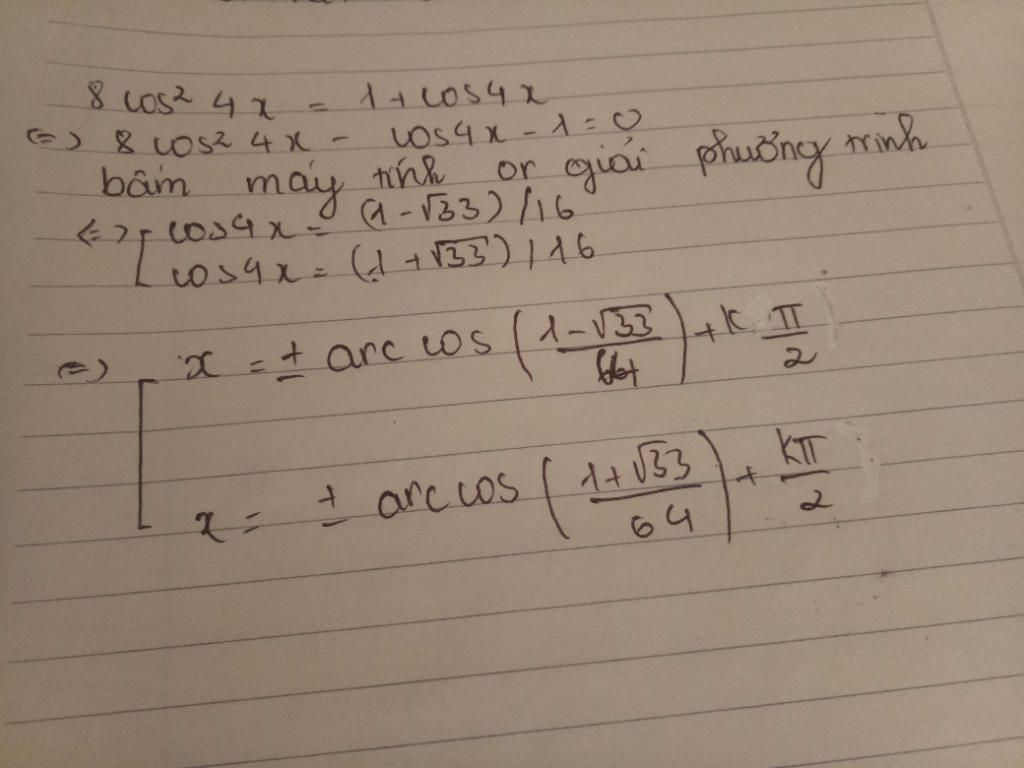 8 cos² 4x = 1 + cos4x
<=> 8 cos² 4x - cos4x - 1 = 0
bấm máy tính or giải phương trình
<=> [ cos4x = (1 - √33) / 16
cos4x = (1 + √33) / 16
<=> [ x = ± arc cos ( (1 - √33) / 64 ) + k π/2
x = ± arc cos ( (1 + √33) / 64 ) + kπ/2